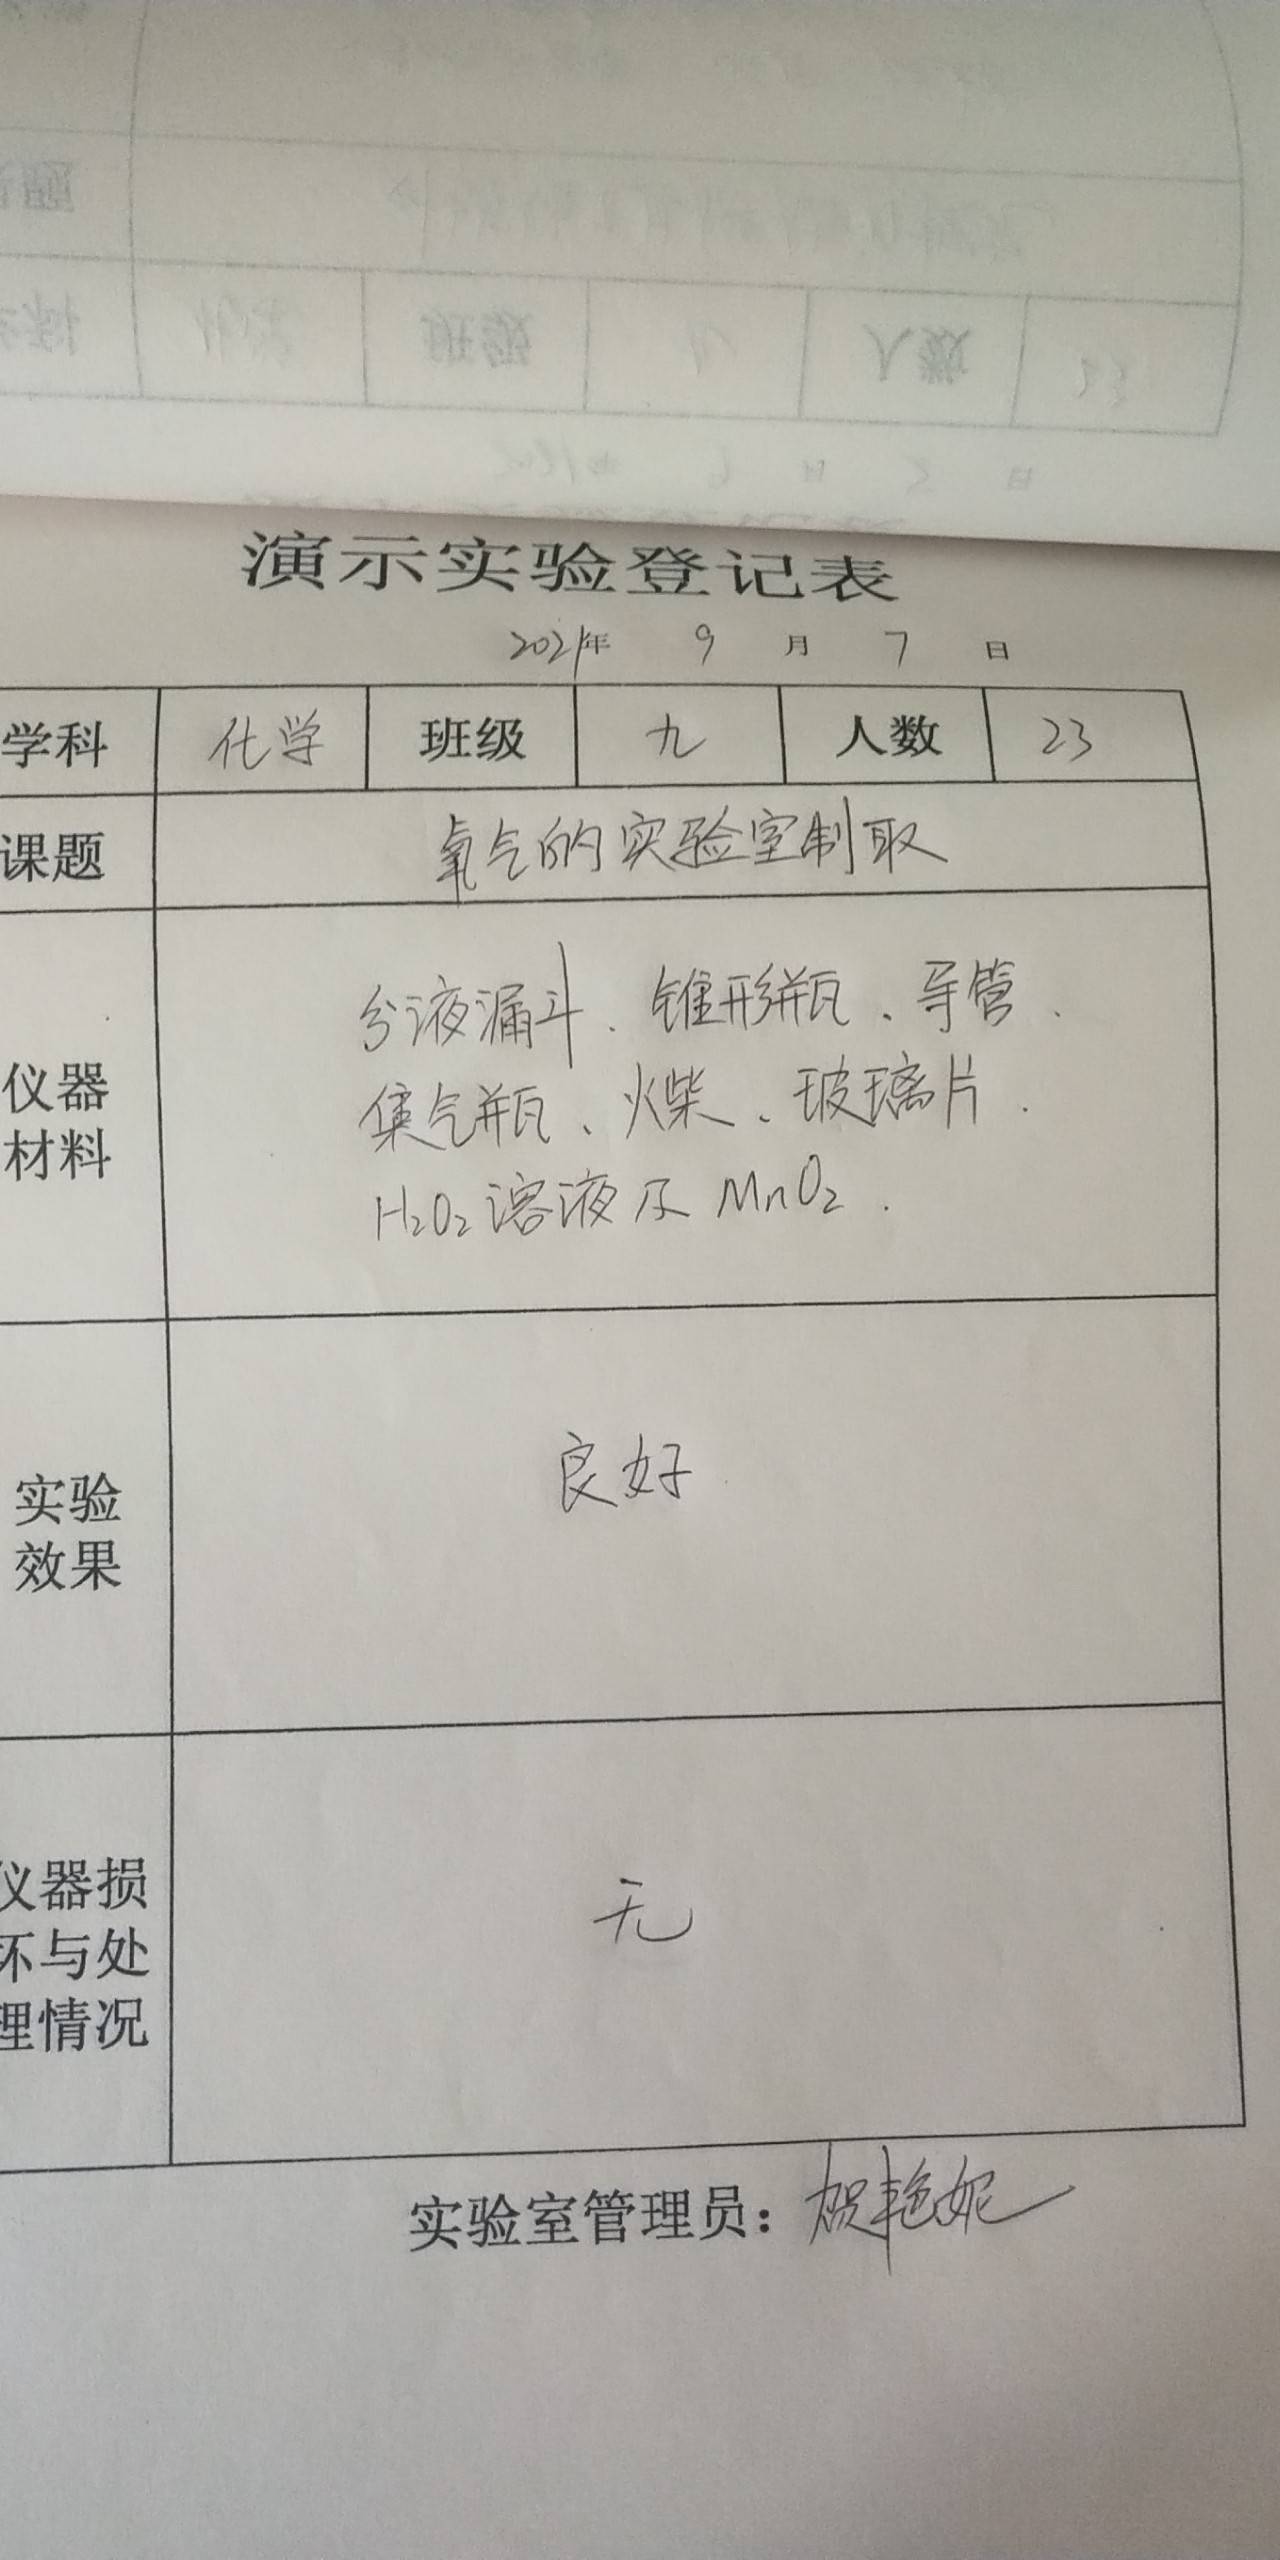 演示实验登记表
2021年 9 月 7 日
学科 化学 班级 九 人数 23
课题 氧气的实验室制取
仪器
材料
分液漏斗、锥形瓶、导管、
集气瓶、火柴、玻璃片、
H₂O₂溶液及 MnO₂.
实验
效果
良好
仪器损
坏与处
理情况
无
实验室管理员：贺艳妮